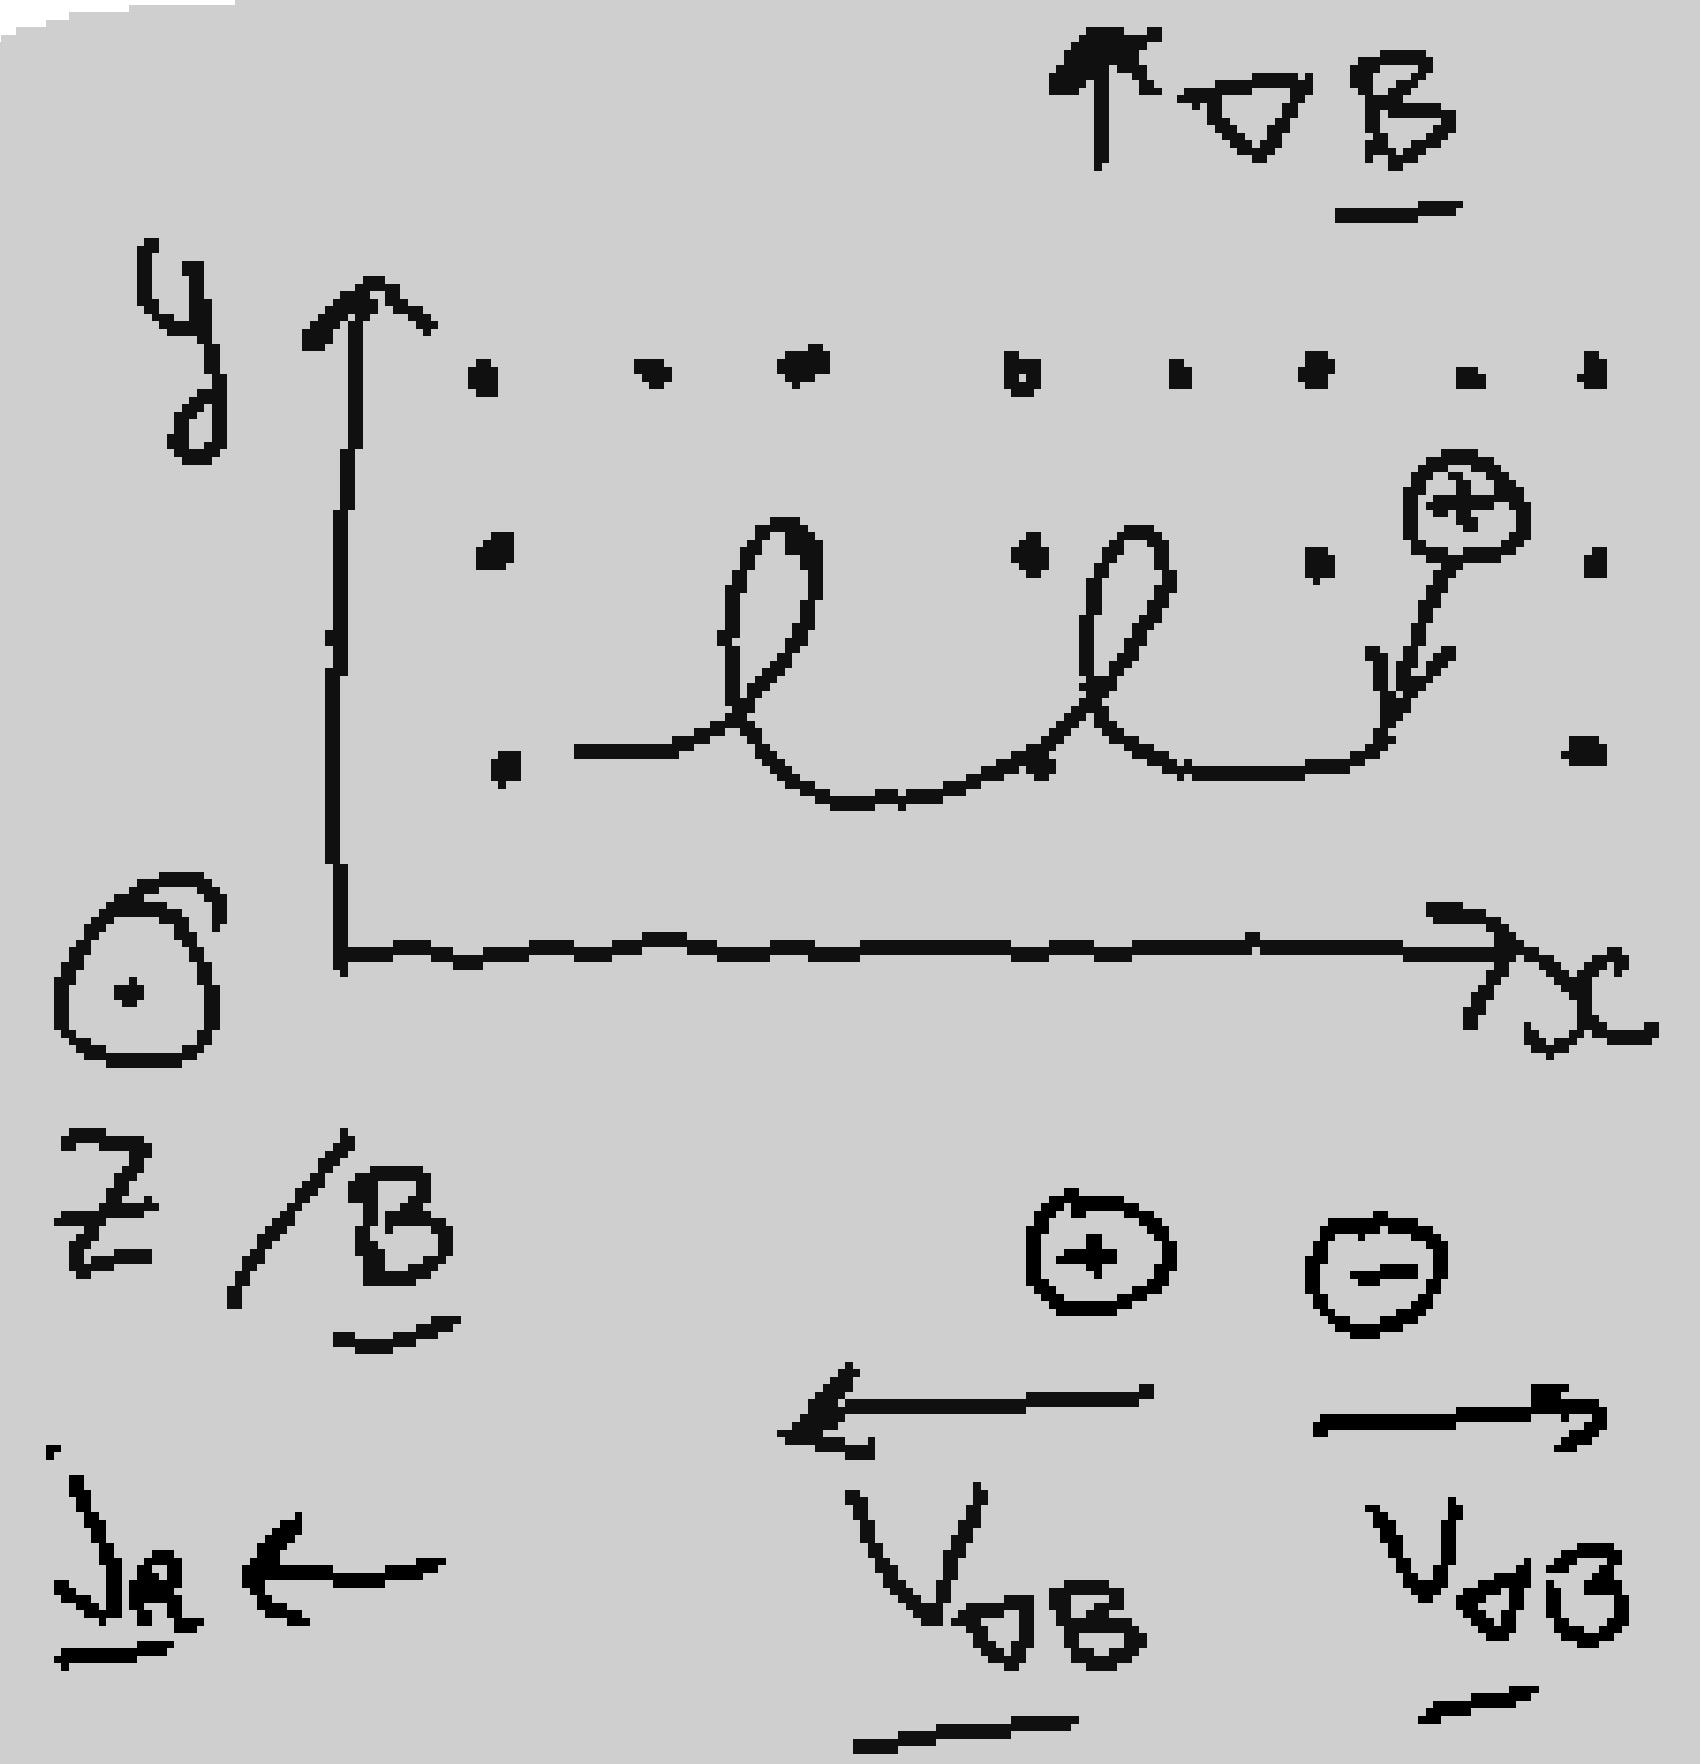 ∇B
y
⊕
x
⊙
z/B
⊕ ⊖
j_R ←
V∇B V∇B